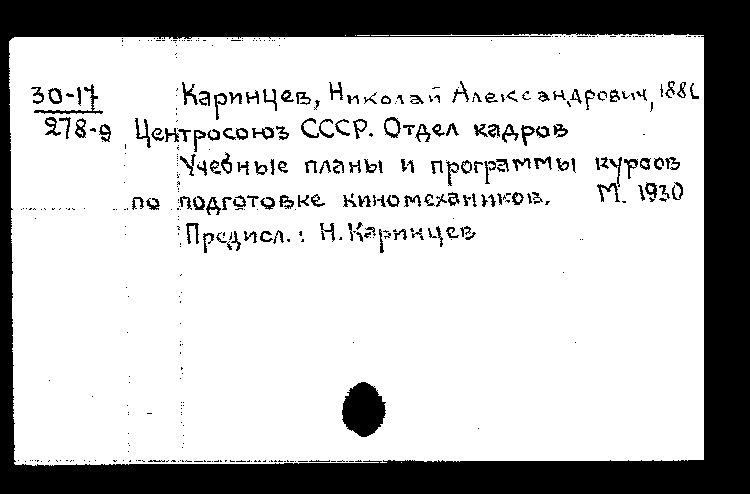 30-17 Каринцев, Николай Александрович, 1886
278-9 Центросоюз СССР. Отдел кадров
Учебные планы и программы курсов
по подготовке киномехаников. М. 1930
Предисл.: Н. Каринцев